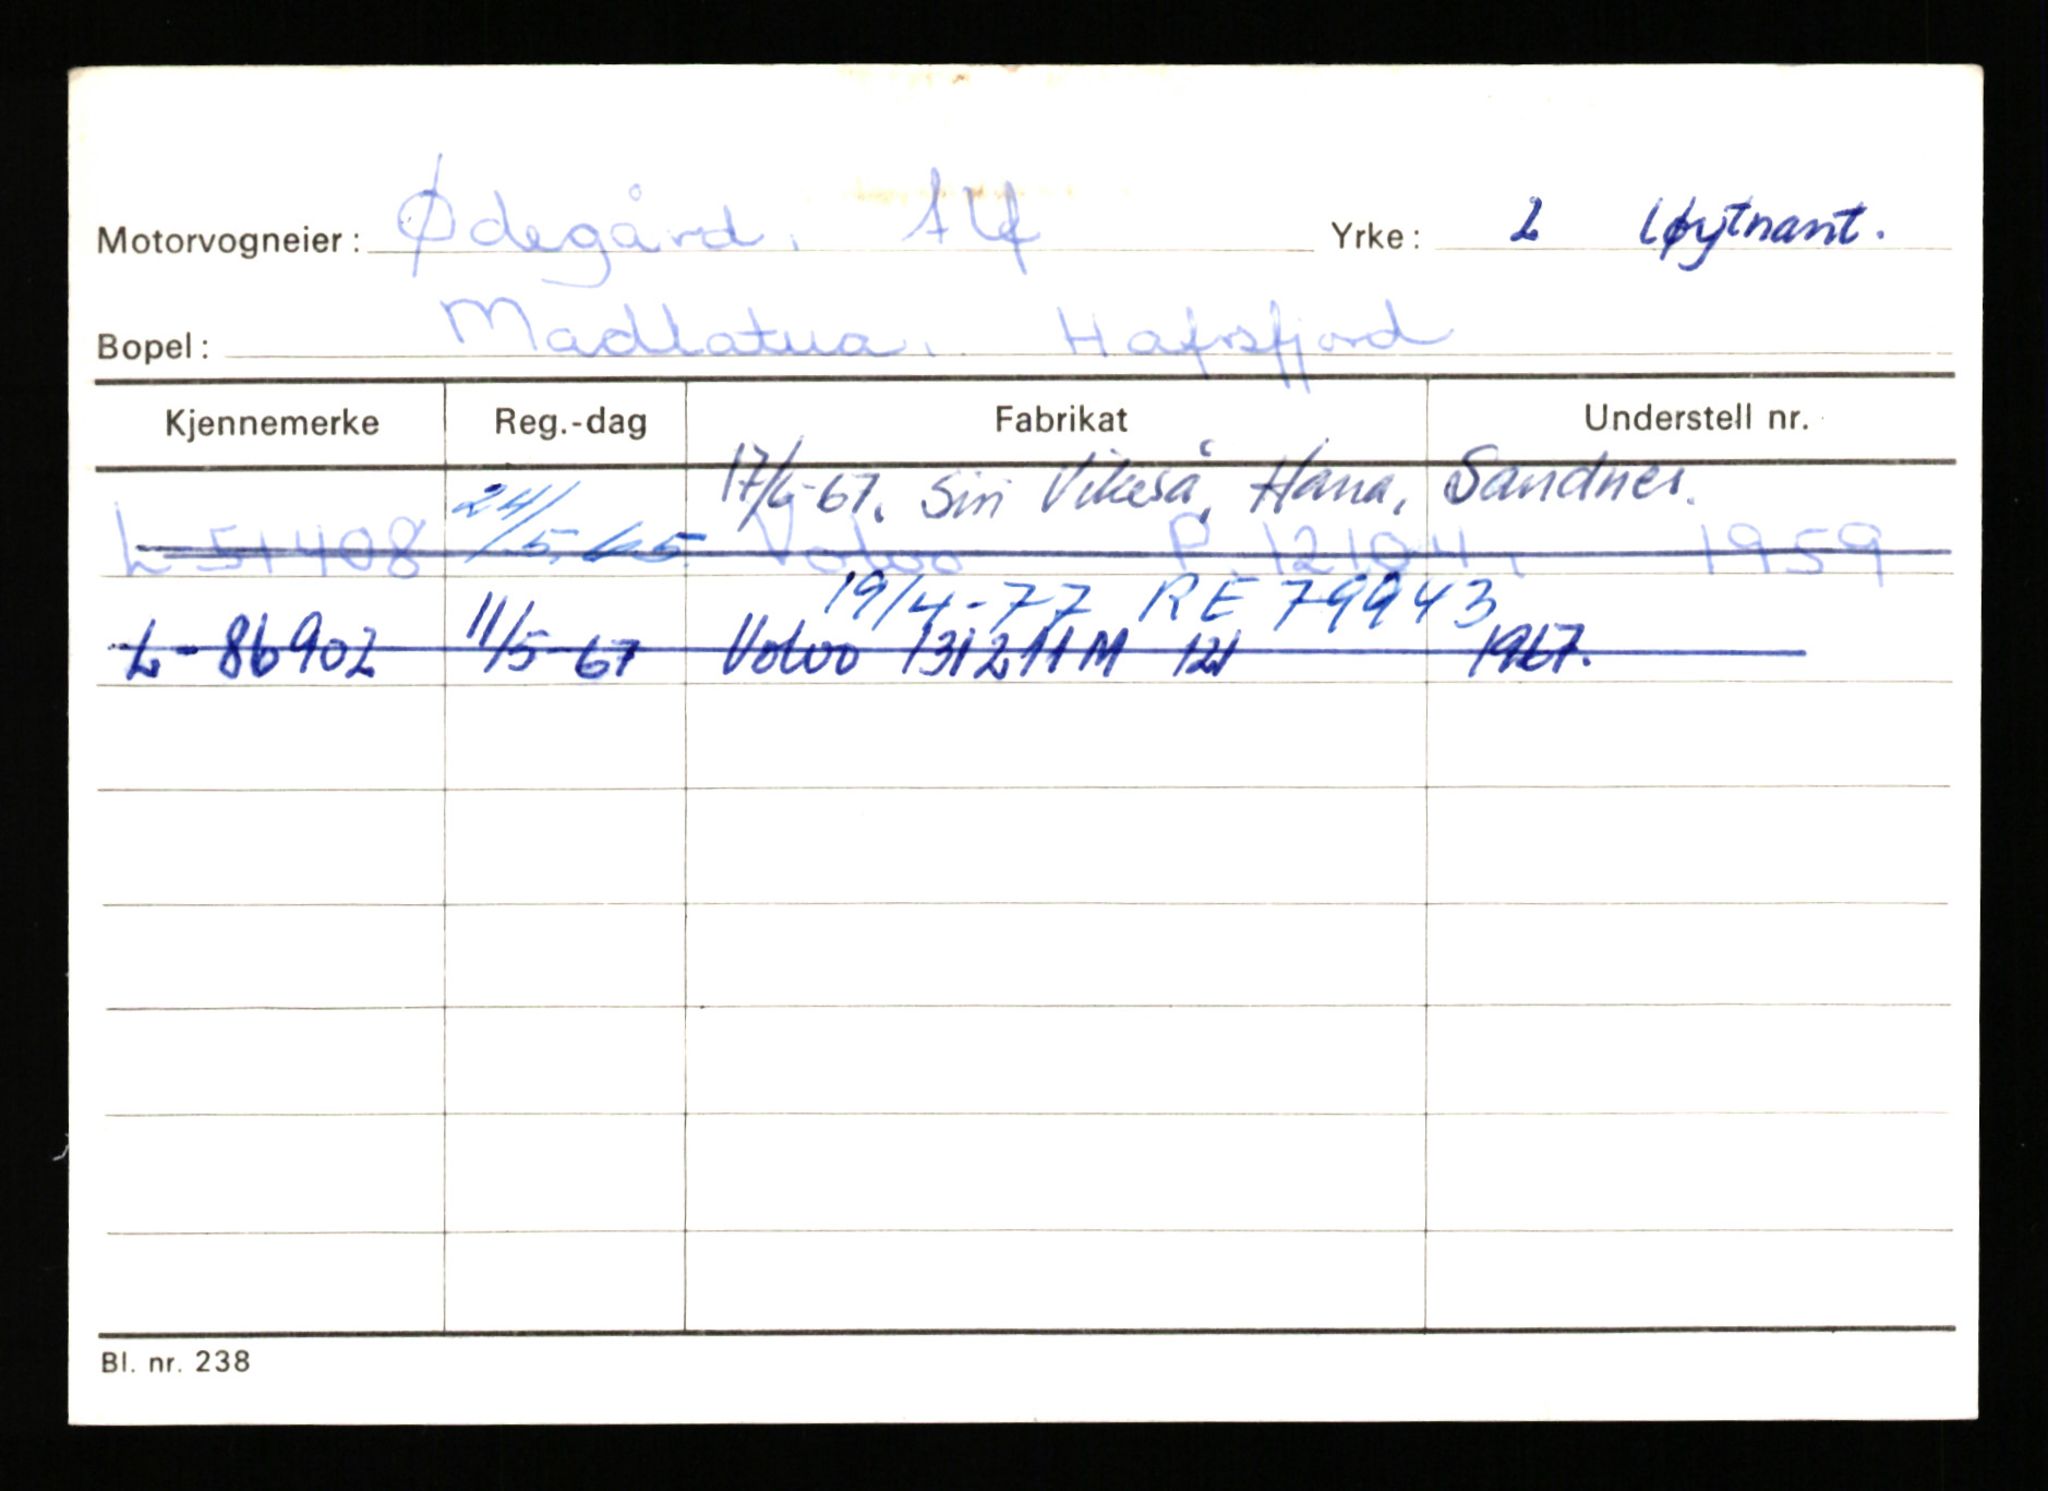 Motorvogneier: Ødegård, Alf Yrke: L løytnant.
Bopel: Madlatua. Hafrsfjord
Kjennemerke Reg.-dag Fabrikat Understell nr.
17/6-67. Siri Vikeså, Hana, Sandnes.
L-51408 24/5.65 Volvo P.121041, 1959
19/4-77 RE 79943
L-86902 11/5-67 Volvo 131211M 121 1967.
Bl. nr. 238